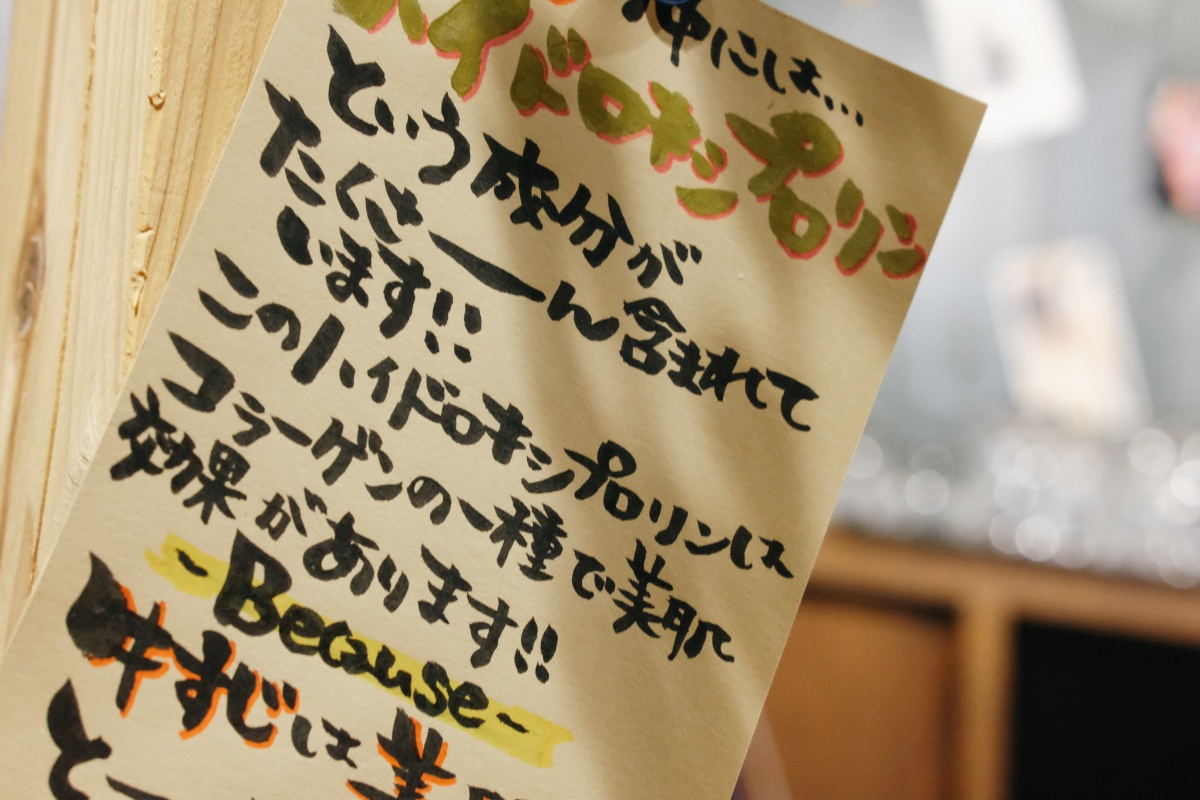 中には…
イドロキシプロリン
という成分が
たくさーん含まれて
います!!
このハイドロキシプロリンは
コラーゲンの一種で美肌
効果があります!!
-Because-
牛すじは美
と